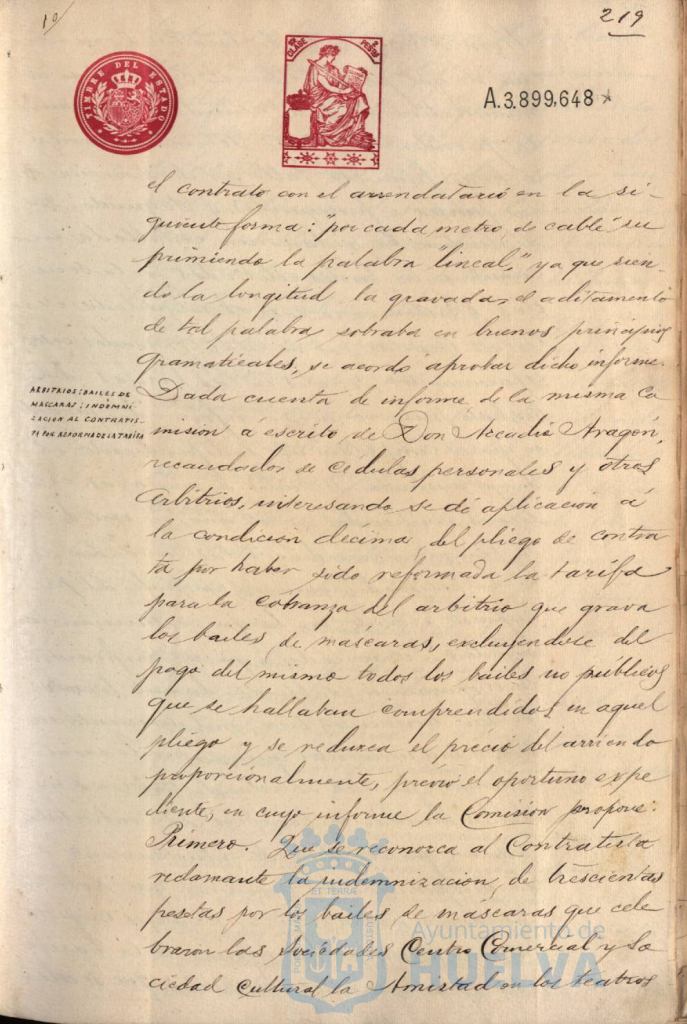 10
219
TIMBRE DEL ESTADO
CLASE
PESETAS
A.3.899,648
el contrato con el arrendatario en la si-
guiente forma: "por cada metro de cable" su
primiendo la palabra "lineal," ya que sien-
do la longitud la gravada, el aditamento
de tal palabra sobraba en buenos principios
gramaticales, se acordó aprobar dicho informe.
ARBITRIOS: BAILES DE
MASCARAS: INDEMNI
ZACION AL CONTRATIS-
TA POR REFORMA DE LA TARIFA
Dada cuenta de informe de la misma Co
mision á escrito de Don Arcadio Aragón,
recaudador de cédulas personales y otros
arbitrios, interesando se dé aplicacion á
la condicion décima del pliego de contra
ta por haber sido reformada la tarifa
para la cobranza del arbitrio que grava
los bailes de máscaras, excluyendose del
pago del mismo todos los bailes no públicos
que se hallaban comprendidos en aquel
pliego y se reduzca el precio del arriendo
proporcionalmente, prévio el oportuno expe
diente, en cuyo informe la Comision propone:
Primero. Que se reconozca al Contratista
reclamante la indemnizacion de trescientas
pesetas por los bailes de máscaras que cele
braron las Sociedades Centro Comercial y So
ciedad Cultural la Amistad en los teatros
Ayuntamiento de
HUELVA